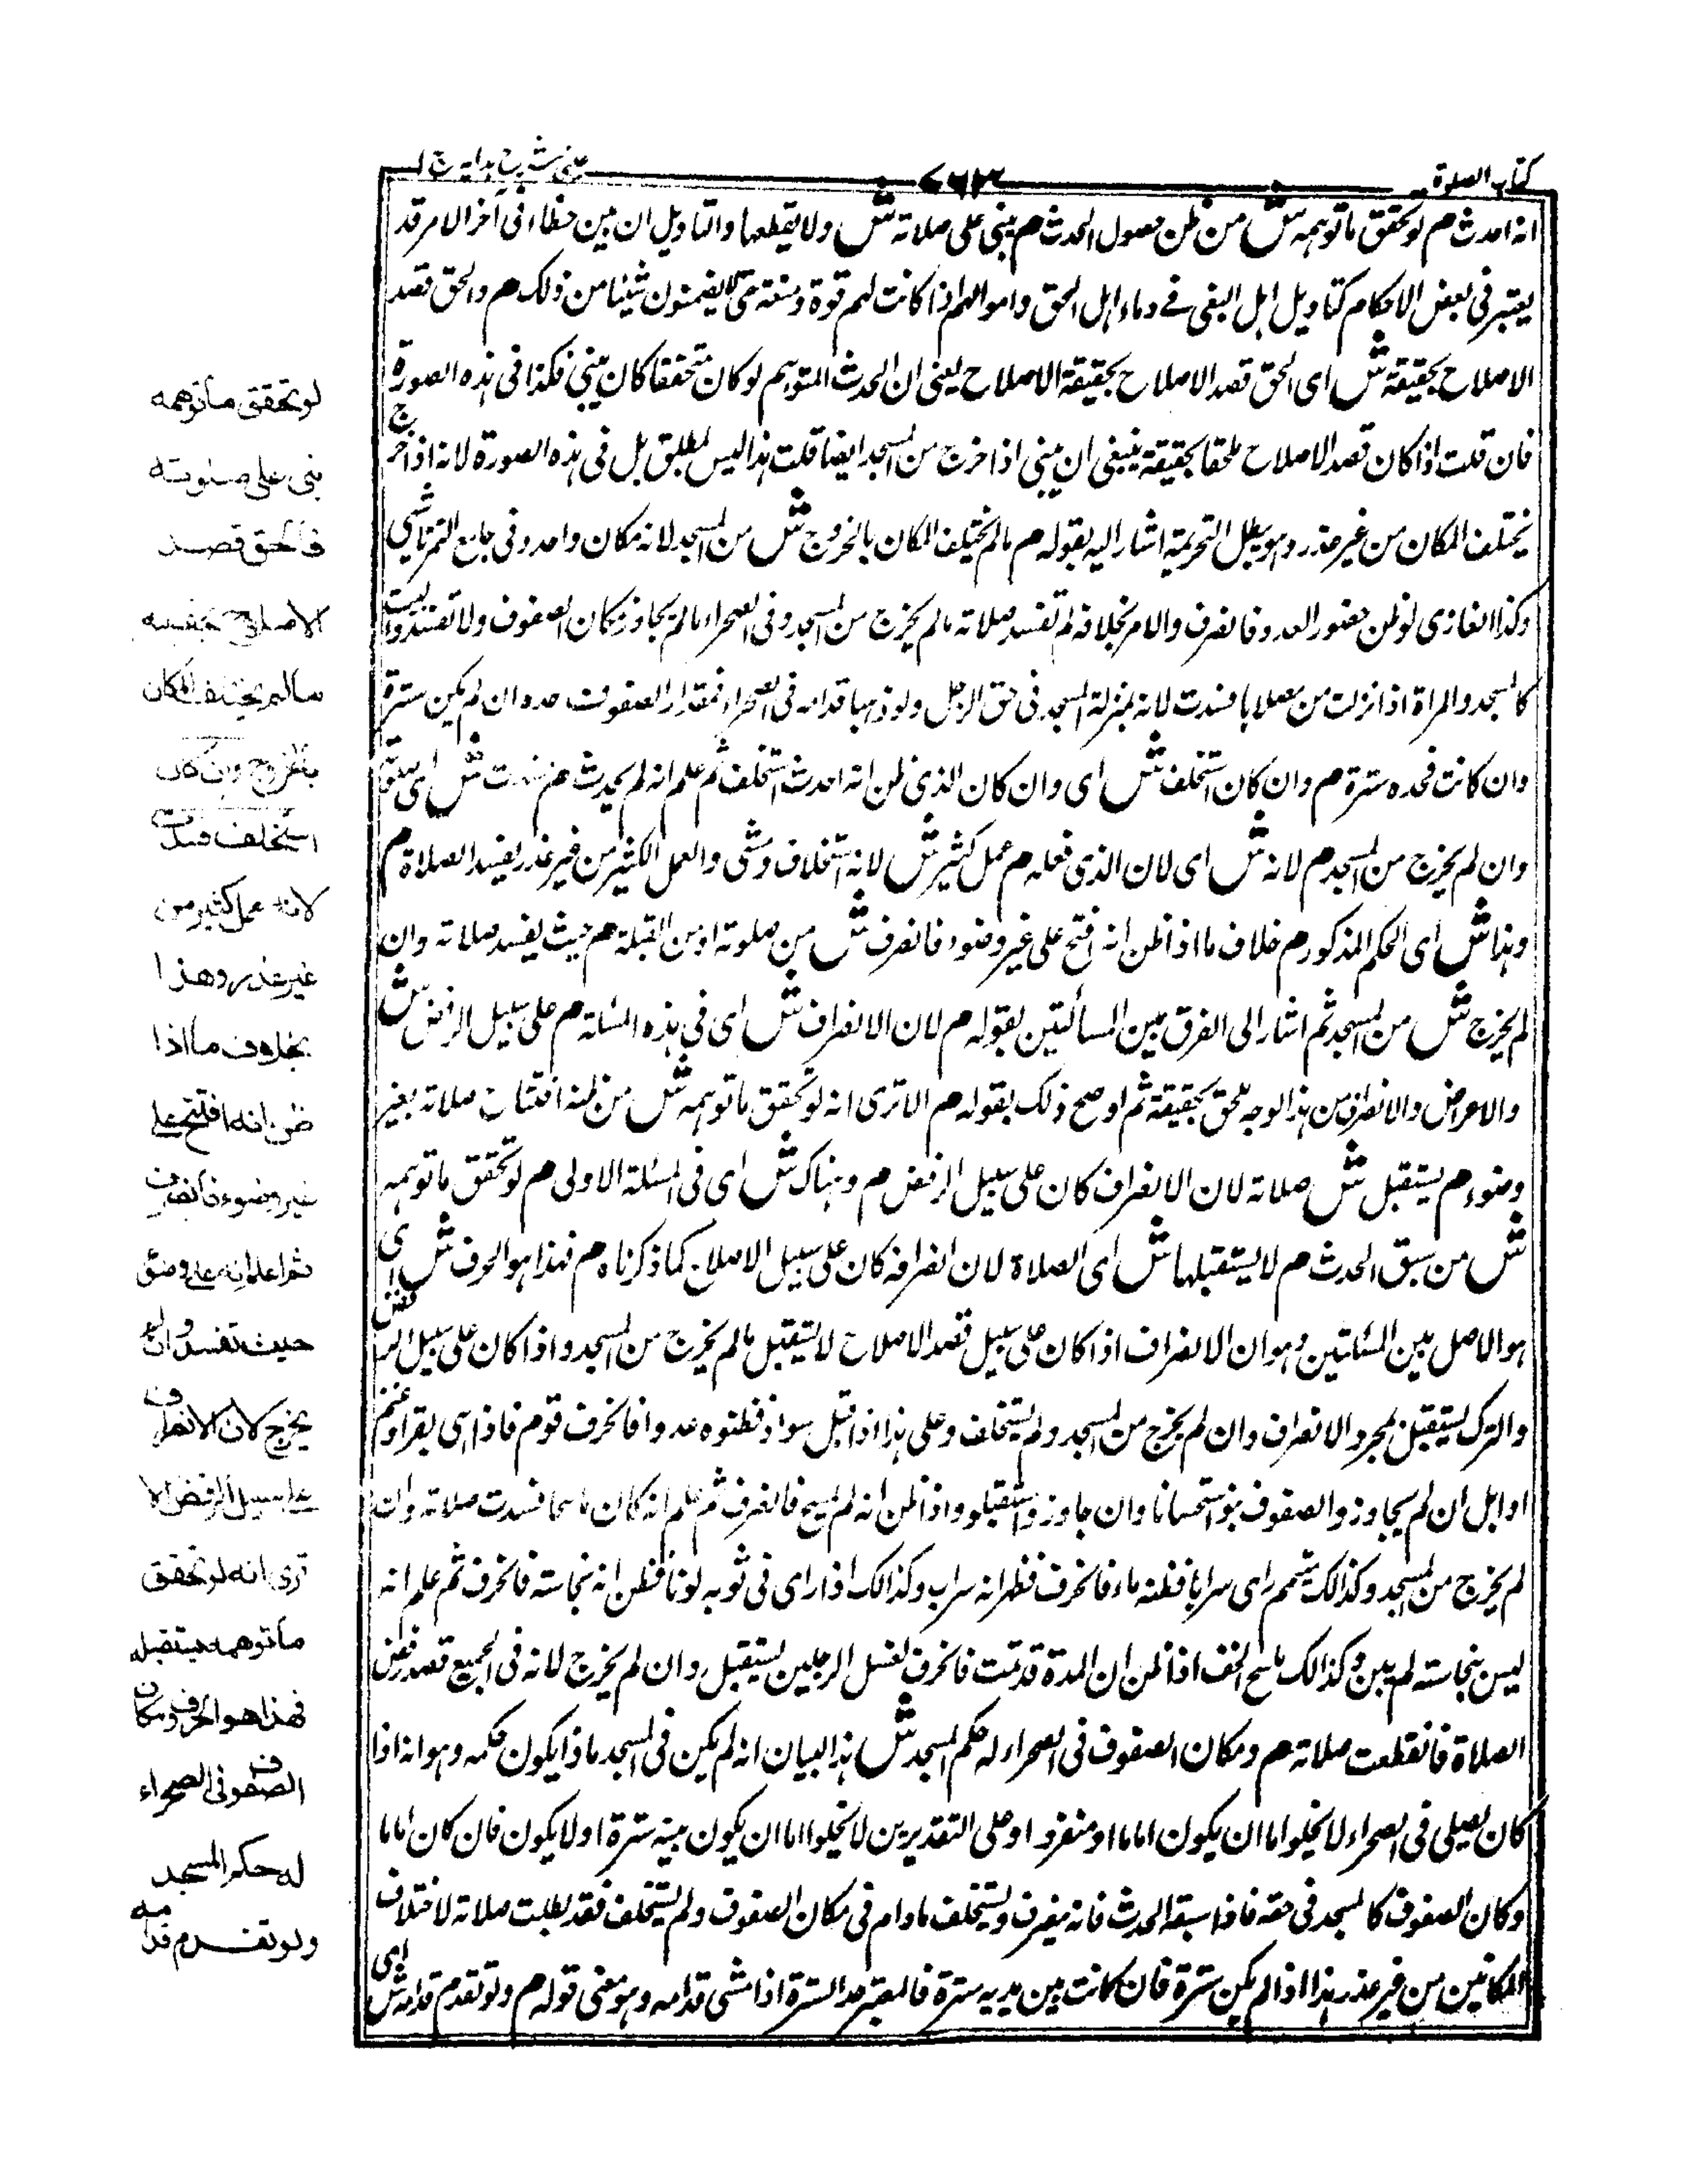 كتاب الصلوة
٧٦٣
عينى شرح هدايه ج ١
انه احدث م لو تحقق ما توهمه ش من ظن حصول الحدث م بنى على صلاته ش ولا يقطعها والتاويل ان بين خطاءه فى آخر الامر قد
يعتبر فى بعض الاحكام كتاويل اهل البغى فے دماء اهل الحق واموالهم اذا كانت لهم قوة ومنعة حتى لا يضمنون شيئا من ذلك م والحق قصد
الاصلاح بحقيقة ش اى الحق قصد الاصلاح بحقيقة الاصلاح يعنى ان الحدث المتوهم لو كان متحققا كان يبنى فكذا فى هذه الصورة
فان قلت اذا كان قصد الاصلاح ملحقا بحقيقة ينبغى ان يبنى اذا خرج من المسجد ايضا قلت هذا ليس بمطلق بل فى هذه الصورة لانه اذا خرج
يختلف المكان من غير عذر وهو يبطل التحريمة اشار اليه بقوله م ما لم يختلف المكان بالخروج ش من المسجد لانه مكان واحد وفى جامع التمرتاشى
وكذا الغازى لو ظن حضور العدو فانصرف والامر بخلافه لم تفسد صلاته ما لم يخرج من المسجد وفى الصحراء ما لم يجاوز مكان الصفوف ولا تفسد والبيت
كالمسجد والمراة اذا نزلت من مصلاها فسدت لانه بمنزلة المسجد فى حق الرجل ولو ذهبا قدامه فى الصحراء فمقدار الصفوف حده ان لم يكن سترة
وان كانت فحده سترة م وان كان استخلف ش اى وان كان الذى ظن انه احدث استخلف ثم علم انه لم يحدث م فسدت ش اى صلوته
وان لم يخرج من المسجد م لانه ش اى لان الذى فعله م عمل كثير ش لانه استخلاف ومشى والعمل الكثير من غير عذر يفسد الصلاة م
وهذا ش اى الحكم المذكور م خلاف ما اذا ظن انه فتح على غير وضوء فانصرف ش من صلوته او من القبلة م حيث يفسد صلاته وان
لم يخرج ش من المسجد ثم اشار الى الفرق بين المسألتين بقوله م لان الانصراف ش اى فى هذه المسئلة م على سبيل الرفض ش
والاعراض والانصراف من هذا الوجه ملحق بحقيقة ثم اوضح ذلك بقوله م الا ترى انه لو تحقق ما توهمه ش من ظنه افتتاح صلاته بغير
وضوء م يستقبل ش صلاته لان الانصراف كان على سبيل الرفض م وهناك ش اى فى المسئلة الاولى م لو تحقق ما توهمه
ش من سبق الحدث م لا يستقبلها ش اى الصلاة لان انصرافه كان على سبيل الاصلاح كما ذكرناه م فهذا هو الحرف ش اى
هو الاصل بين المسئلتين وهو ان الانصراف اذا كان على سبيل قصد الاصلاح لا يستقبل ما لم يخرج من المسجد واذا كان على سبيل الرفض
والترك يستقبل بمجرد الانصراف وان لم يخرج من المسجد ولم يستخلف وعلى هذا اذا قبل سواد فظنوه عدوا فانحرف قوم فاذا هى بقر او غنم
او ابل ان لم يجاوز والصفوف بنوا استحسانا وان جاوز واستقبلوا واذا ظن انه لم يمسح فانصرف ثم علم انه كان ماسحا فسدت صلاته وان
لم يخرج من المسجد وكذلك متيمم راى سرابا فظنه ماء فانحرف فظهر انه سراب وكذالك اذا راى فى ثوبه لونا فظن انه نجاسته فانحرف ثم علم انه
ليس بنجاسته لم يبن وكذالك ماسح الخف اذا ظن ان المدة قد تمت فانحرف لغسل الرجلين يستقبل وان لم يخرج لانه فى الجميع قصد رفض
الصلاة فانقطعت صلاته م ومكان الصفوف فى الصحراء له حكم المسجد ش هذا لبيان انه لم يكن فى المسجد ماذا يكون حكمه وهو انه اذا
كان يصلى فى الصحراء لا يخلوا اما ان يكون اماما او منفردا وعلى التقديرين لا يخلوا اما ان يكون بينه سترة او لا يكون فان كان اماما
وكان الصفوف كالمسجد فى حقه فاذا سبقه الحدث فانه ينصرف ويستخلف مادام فى مكان الصفوف ولم يستخلف فقد بطلت صلاته لاختلاف
المكانين من غير عذر هذا اذا لم يكن سترة فان كانت بين يديه سترة فالمعتبر حد السترة اذا مشى قدامه وهو معنى قوله م ولو تقدم قدامه ش اى
لو تحقق ما توهمه
بنى على صلوته
فالحق قصد
الاصلاح بحقيقته
ما لم يختلف المكان
بالخروج وان كان
استخلف فسدت
لانه عمل كثير من
غير عذر وهذا
بخلاف ما اذا
ظن انه افتتح على
غير وضوء فانصرف
ثم اعلم انه على وضوء
حيث تفسد وان لم
يخرج لان الانصراف
على سبيل الرفض الا
ترى انه لو تحقق
ما توهمه يستقبله
فهذا هو الحرف ومكان
الصفوف فى الصحراء
له حكم المسجد
ولو تقدم قدامه